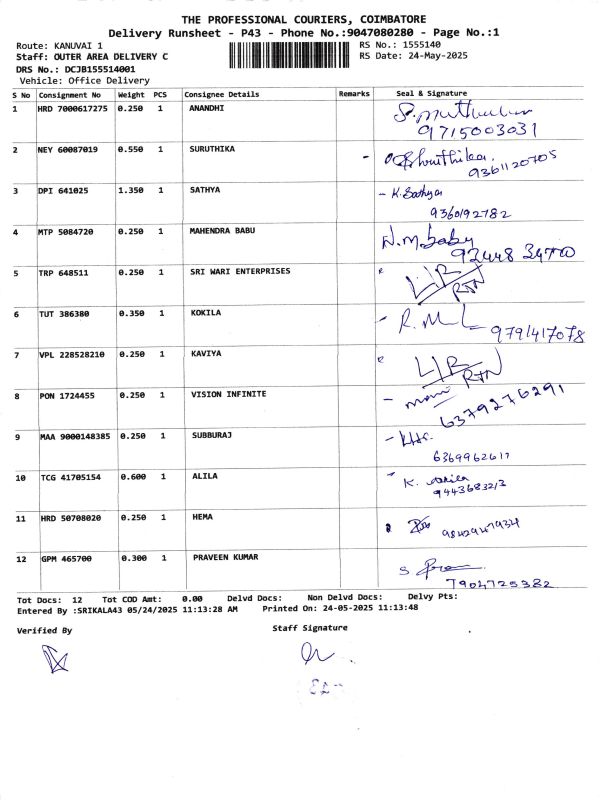 THE PROFESSIONAL COURIERS, COIMBATORE
Delivery Runsheet - P43 - Phone No.:9047080280 - Page No.:1
Route: KANUVAI 1 RS No.: 1555140
Staff: OUTER AREA DELIVERY C RS Date: 24-May-2025
DRS No.: DCJB155514001
Vehicle: Office Delivery
S No Consignment No Weight PCS Consignee Details Remarks Seal & Signature
1 HRD 7000617275 0.250 1 ANANDHI
9715003031
2 NEY 60087019 0.550 1 SURUTHIKA
9361120705
3 DPI 641025 1.350 1 SATHYA - K. Sathya
9360192782
4 MTP 5084720 0.250 1 MAHENDRA BABU N.M.baby
5 TRP 648511 0.250 1 SRI WARI ENTERPRISES
RTN
6 TUT 386380 0.350 1 KOKILA
9791417078
7 VPL 228528210 0.250 1 KAVIYA
RTN
8 PON 1724455 0.250 1 VISION INFINITE
6379276291
9 MAA 9000148385 0.250 1 SUBBURAJ
6369962617
10 TCG 41705154 0.600 1 ALILA
9443683213
11 HRD 50708020 0.250 1 HEMA
9842947934
12 GPM 465700 0.300 1 PRAVEEN KUMAR
7904725382
Tot Docs: 12 Tot COD Amt: 0.00 Delvd Docs: Non Delvd Docs: Delvy Pts:
Entered By :SRIKALA43 05/24/2025 11:13:28 AM Printed On: 24-05-2025 11:13:48
Verified By Staff Signature